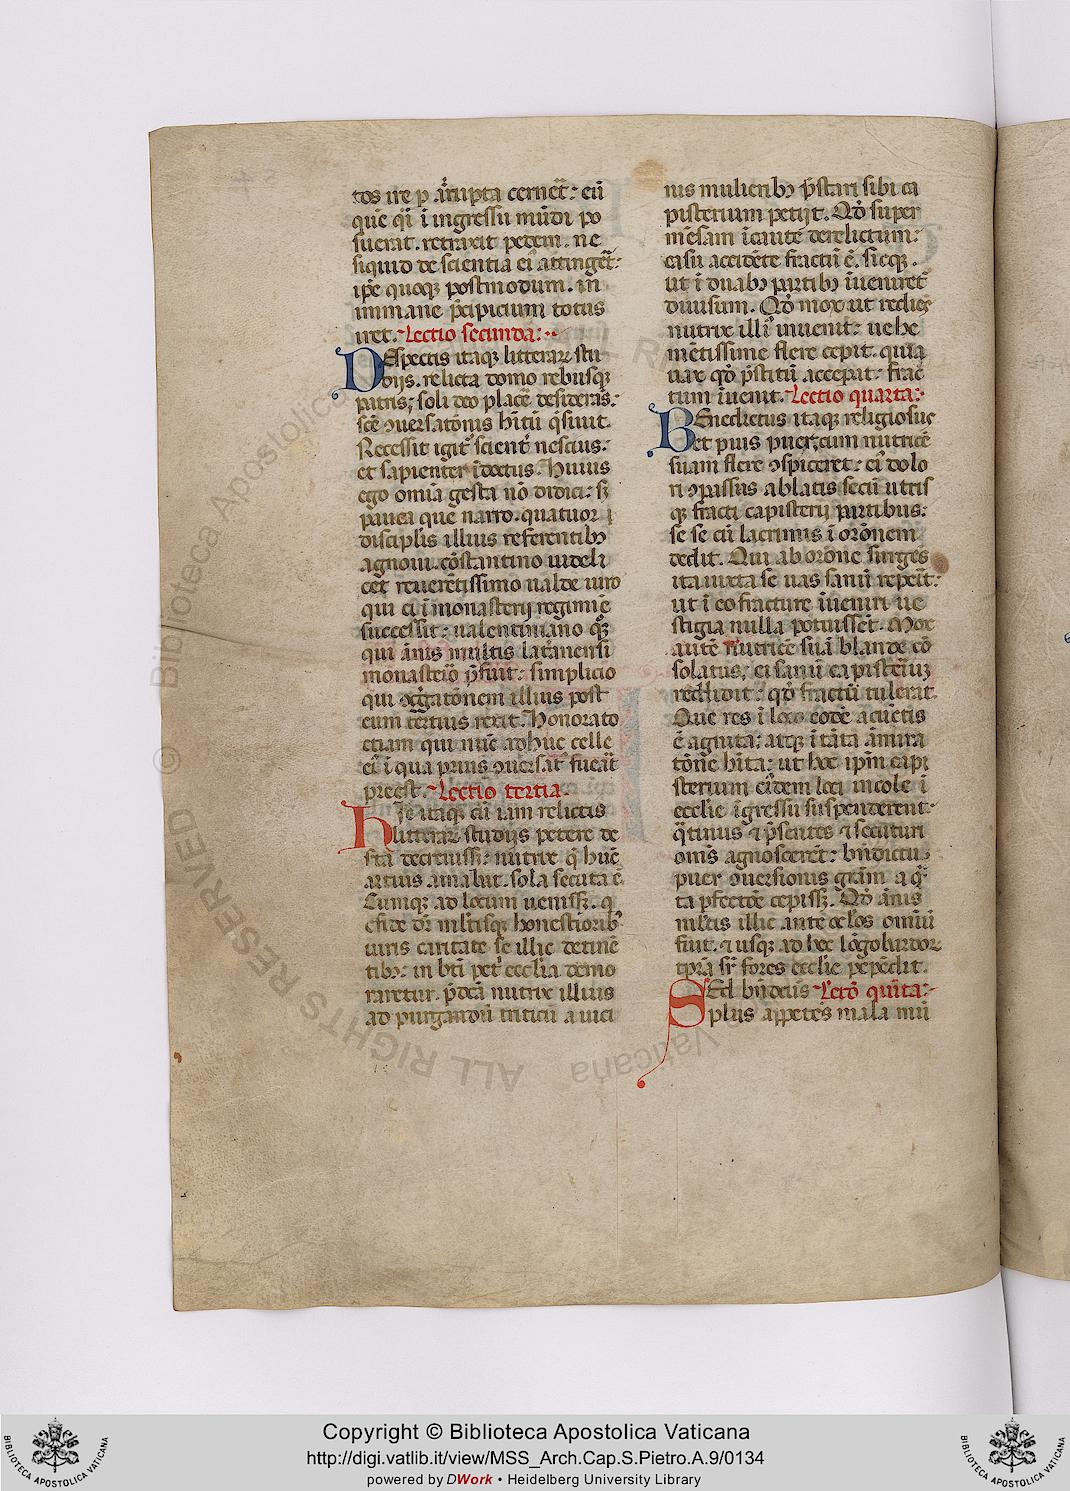 tos ire p abrupta cernet: eū
que qͥ ī ingressu mūdi po
suerat. retraxit pedem. ne
siquid de scientia eiꝰ attinget:
ip̄e quoqꝫ postmodum. in
immane p̄cipicium totus
iret. Lectio secunda:
DEspectis itaqꝫ litterarꝫ stu
diis. relicta domo rebusqꝫ
patris; soli deo placē desiderās.
scē ꝯuersatōnis hītū q̄siuit.
Recessit igiť scienť nescius:
et sapienter īdoctus. Huius
ego omīa gesta nō didici: sꝫ
pauca que narro. quatuor
discipĺis illius referentibꝫ
agnoui. cōstantino uideli
cet reuerētissimo ualde uiro
qui ei ī monasterij regimīe
successit: ualentiniano qꝫ
qui ānis multis lat̄anensi
monasterio p̄fuit: simplicio
qui ꝯg̃gatōnem illius post
eum tertius rexit. Honorato
etiam qui nūc adhuc celle
eiꝰ ī qua prius ꝯuersatꝰ fuerat
preest. Lectio tertia.
HIc itaqꝫ cū iam relictis
litterarꝫ studijs petere de
sta decreuissꝫ: nutrix q̄ hūc
artius amabat. sola secuta ē.
Cumqꝫ ad locum uenissꝫ. q
efide dr̄ mĺtisqꝫ honestioribꝰ
uiris caritate se illic detinē
tibꝫ: in bt̄i petͥ ecclīa demo
raretur. p̄dc̄a nutrix illius
ad purgandū triticū a uici
nis mulieribꝫ p̄stari sibi ca
pisterium petijt. Qd̓ super
mēsam īcaute derelictum:
casu accidēte fractū ē. sicqꝫ.
ut ī duabꝫ partibꝫ īuenireť
diuisum. Qd̓ mox ut rediēs
nutrix illiꝰ inuenit: uehe
mētissime flere cepit. quia
uas qd̓ p̄stitū acceperat: frac
tum īuenit. Lectio quarta:
BEnedictus itaqꝫ religiosus
et pius puer, cum nutricē
suam flere ꝯspiceret: eiꝰ dolo
ri ꝯpassus ablatis secū utris
qꝫ fracti capisterij partibus:
se se cū lacrimis ī orōnem
dedit. Qui ab orōne surgēs
ita iuxta se uas sanū reperit:
ut ī eo fracture īueniri ue
stigia nulla potuissēt. Mox
autē nutricē suā blande cō
solatus, ei sanū capisteriuꝫ
reddidit: qd̓ fractū tulerat.
Que res ī loco eodē a cūctis
ē agnita: atqꝫ ī tāta āmira
tōne hīta: ut hoc ip̄m capi
sterium eiꝰdem loci incole ī
ecclīe īgressu suspenderent.
q̄tinus ⁊ p̄sentes ⁊ secuturi
om̄s agnoscerēt: bn̄dictus
puer ꝯuersionis gr̄am a q̄
ta pfectōe cepissꝫ. Qd̓ ānis
mĺtis illic ante oc̓los omniū
fuit. ⁊ usqꝫ ad hec lōgobardorꝫ
tp̄ra sr̄ fores ecclīe pepēdit.
SEd bn̄dictus Lecto quīta:
plus appetēs mala mū
Copyright © Biblioteca Apostolica Vaticana
http://digi.vatlib.it/view/MSS_Arch.Cap.S.Pietro.A.9/0134
powered by DWork • Heidelberg University Library
BIBLIOTECA APOSTOLICA VATICANA
BIBLIOTECA APOSTOLICA VATICANA
© Biblioteca Apostolica Vaticana ALL RIGHTS RESERVED